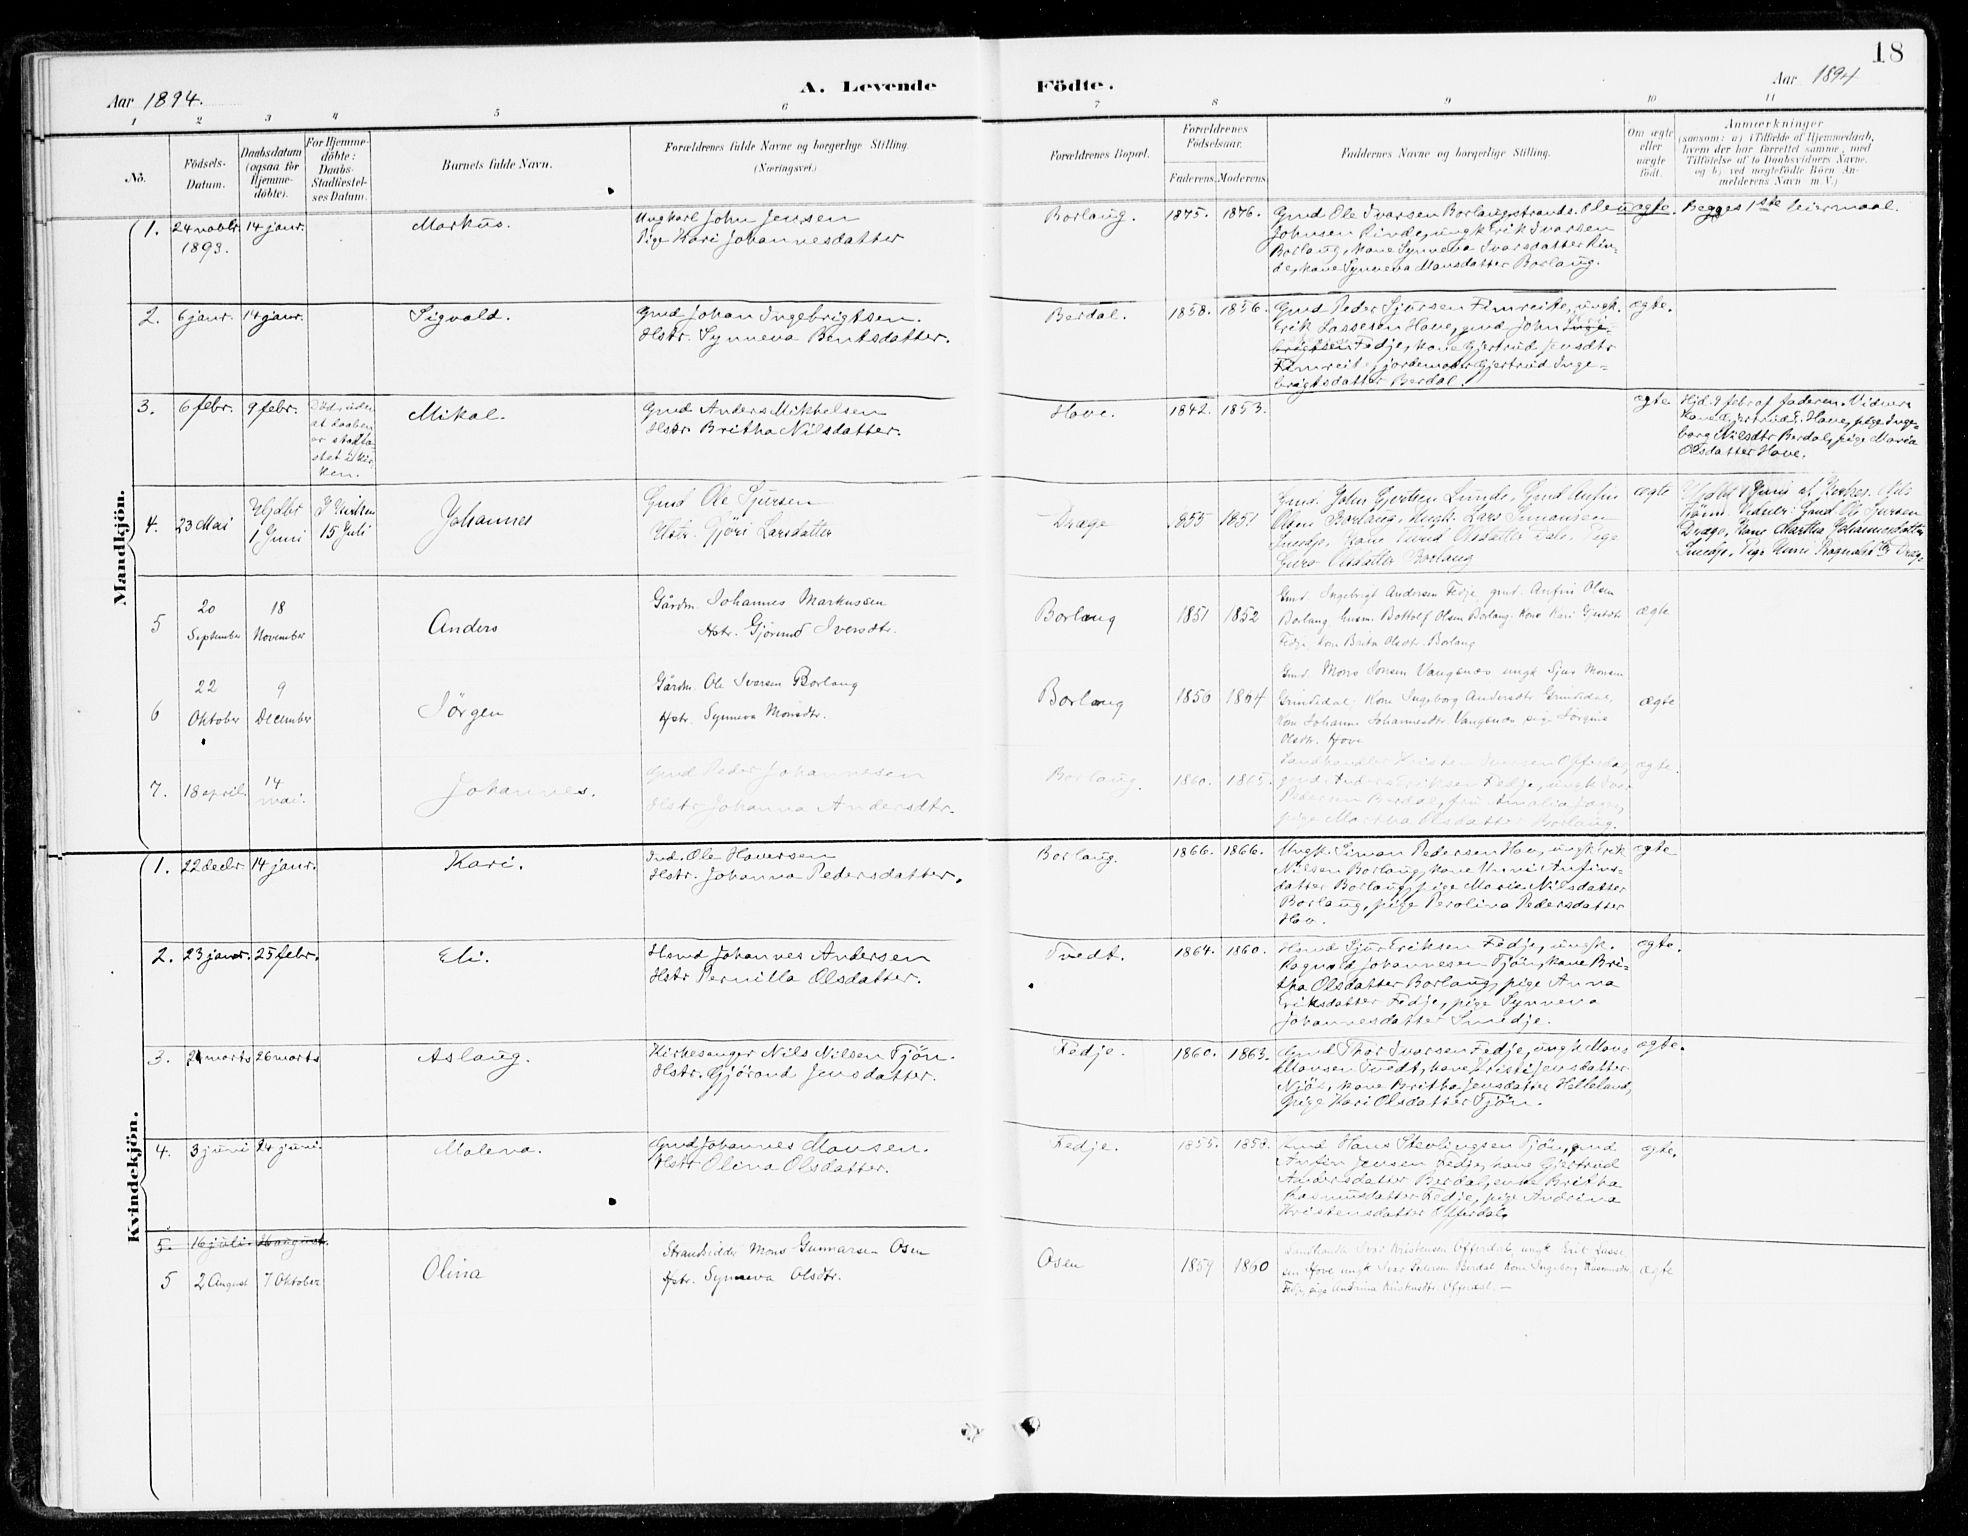 18
Aar 1894.
A. Levende
Födte.
Aar 1894
1 2 3 4 5 6 7 8 9 10 11
No.
Födsels-
Datum.
Daabsdatum
(ogsaa for
Hjemme-
döbte).
For Hjemme-
döbte:
Daabs-
Stadfæstel-
ses Datum.
Barnets fulde Navn.
Forældrenes fulde Navne og borgerlige Stilling.
(Næringsvei.)
Forældrenes Bopæl.
Forældrenes
Födselsaar.
Faderens. Moderens.
Faddernes Navne og borgerlige Stilling.
Om ægte
eller
uægte
födt.
Anmærkninger
(saasom: a) i Tilfælde af Hjemmedaab,
hvem der har forrettet samme, med
Tilföielse af to Daabsvidners Navne.
og b) ved uægtefödte Börn An-
melderens Navn m. V.)
Mandkjön.
1. 24 novbr. 1893. 14 janr. Markus.
Ungkarl John Jensen
Pige Kari Johannesdatter
Borlaug. 1875. 1876.
Gmd Ole Ivarsen Borlaugstrande. Ole
Johnsen Rinde, ungk Erik Ivarsen
Borlaug, kone Synneva Ivarsdatter Rin-
de, kone Synneva Monsdatter Borlaug.
uægte. Begges 1ste leiermaal.
2. 6 janr. 14 janr. Sigvald.
Gmd Johan Ingebrigtsen.
Hstr. Synneva Bentsdatter.
Berdal. 1858. 1856.
Gmd Peder Sjursen Fimreite, ungk.
Erik Lassesen Hove, gmd John Inge-
brigtsen Fedje, kone Gjertrud Jensdtr
Fimreit, jordemoder Gjertrud Inge-
brigtsdatter Berdal.
ægte.
3. 6 febr. 9 febr.
Död, uden
at daaben
er stadfæ-
stet i kir-
ken.
Mikal.
Gmd Anders Mikkelsen
Hstr Britha Nilsdatter.
Hove. 1842. 1853.
ægte
Hjd. 9 febr af faderen. Vidner:
Kone Gjertrud E. Hove, pige Inge-
borg Nilsdtr Berdal, pige Maria
Olsdatter Hove.
4. 23 Mai Hjdbt 1 Juni I Kirken 15 Juli Johannes
Gmd Ole Sjursen
Hstr. Gjöri Larsdatter
Drage 1855 1851
Gmd. John Gjertsen Lunde, Gmd Anfin
Olsen Borlaug, Ungk. Lars Simonsen
Smedje, Kone Olsdatter Dale, Pige
Guro Olsdatter Borlaug
ægte
Hjdbt 1 Juni af Kirkes. Nils
Tjönn. Vidner: Gmd Ole Sjursen
Drage, Kone Martha Johannesdatter
Smedje, Pige Unni Ragnaldsdtr Drage
5 20 September 18 November Anders
Gårdm. Johannes Markussen
Hstr. Gjörond Iversdtr.
Borlaug 1851 1852
Gmd. Ingebrigt Andersen Fedje, gmd. Anfin Olsen
Borlaug, husm. Bottolf Olsen Borlaug. Kone Kari
Fedje, kone Brita Olsdtr. Borlaug
ægte
6 22 Oktober 9 December Jörgen
Gårdm. Ole Iversen Borlaug
Hstr. Synneva Monsdtr.
Borlaug 1850 1864
Gmd. Mons Jonsen Vangsnes ungk Sjur Monsen
Grinsdal, Kone Ingeborg Andersdtr Grinsdal,
Kone Johanne Johannesdtr. Vangsnes, pige Jörgine
Olsdtr. Hove
ægte
7. 18 april. 14 mai. Johannes.
Gmd Peder Johannesen
Hstr Johanna Andersdtr.
Borlaug. 1860. 1865.
Landhandler Kristen Iversen Offerdal,
gmd. Anders Eriksen Fedje, ungk Ivar
Pedersen Berdal, fru Amalia
pige Martha Olsdatter Borlaug.
ægte.
Kvindekjön.
1. 22 decbr. 14 janr. Kari.
Ind. Ole Haversen
Hstr. Johanna Pedersdatter.
Borlaug. 1866. 1866.
Ungk. Simon Pedersen Hov, ungk Erik
Nilsen Borlaug, kone Unni Anfins-
datter Borlaug, pige Marie Nilsdatter
Borlaug, pige Perolina Pedersdatter
Hov.
ægte
2. 23 janr. 25 febr. Eli.
Hsmd Johannes Andersen
Hstr Pernilla Olsdatter.
Tvedt. 1864. 1860.
Hsmd Sjur Eriksen Fedje, ungk.
Ragnald Johannesen Tjön, kone Bri-
tha Olsdatter Borlaug, pige Anna
Eriksdatter Fedje, pige Synneva
Johannesdatter Smedje.
ægte.
3. 21 marts 26 marts Aslaug.
Kirkesanger Nils Nilsen Tjön.
Hstr. Gjörond Jensdatter.
Fedje. 1860. 1863.
Gmd Thor Ivarsen Fedje, ungk Mons
Monsen Tvedt, kone Kristi Jensdatter
Njös, kone Britha Jensdatter Helleland,
pige Kari Olsdatter Tjön.
ægte.
4. 3 juni 24 juni. Malena.
Gmd Johannes Monsen.
Hstr Olina Olsdatter.
Fedje. 1855. 1858.
Gmd Hans Stevlingsen Tjön, gmd
Anfin Jensen Fedje, kone Gjertrud
Andersdatter Berdal, enke Britha
Rasmusdatter Fedje, pige Andrina
Kristensdatter Offerdal.
ægte.
5. 16 juli. 26 august.
5 2 August 7 Oktober Olina
Strandsidder Mons Gunnarsen Osen
Hstr. Synneva Olsdtr.
Osen 1859 1860
Landhandl Ivar Kristensen Offerdal, ungk Erik Lasse-
sen Hove ungk Ivar Pedersen Berdal Kone Ingeborg Rasmusdtr
Fedje, pige Andrina Kristensdtr. Offerdal. —
ægte